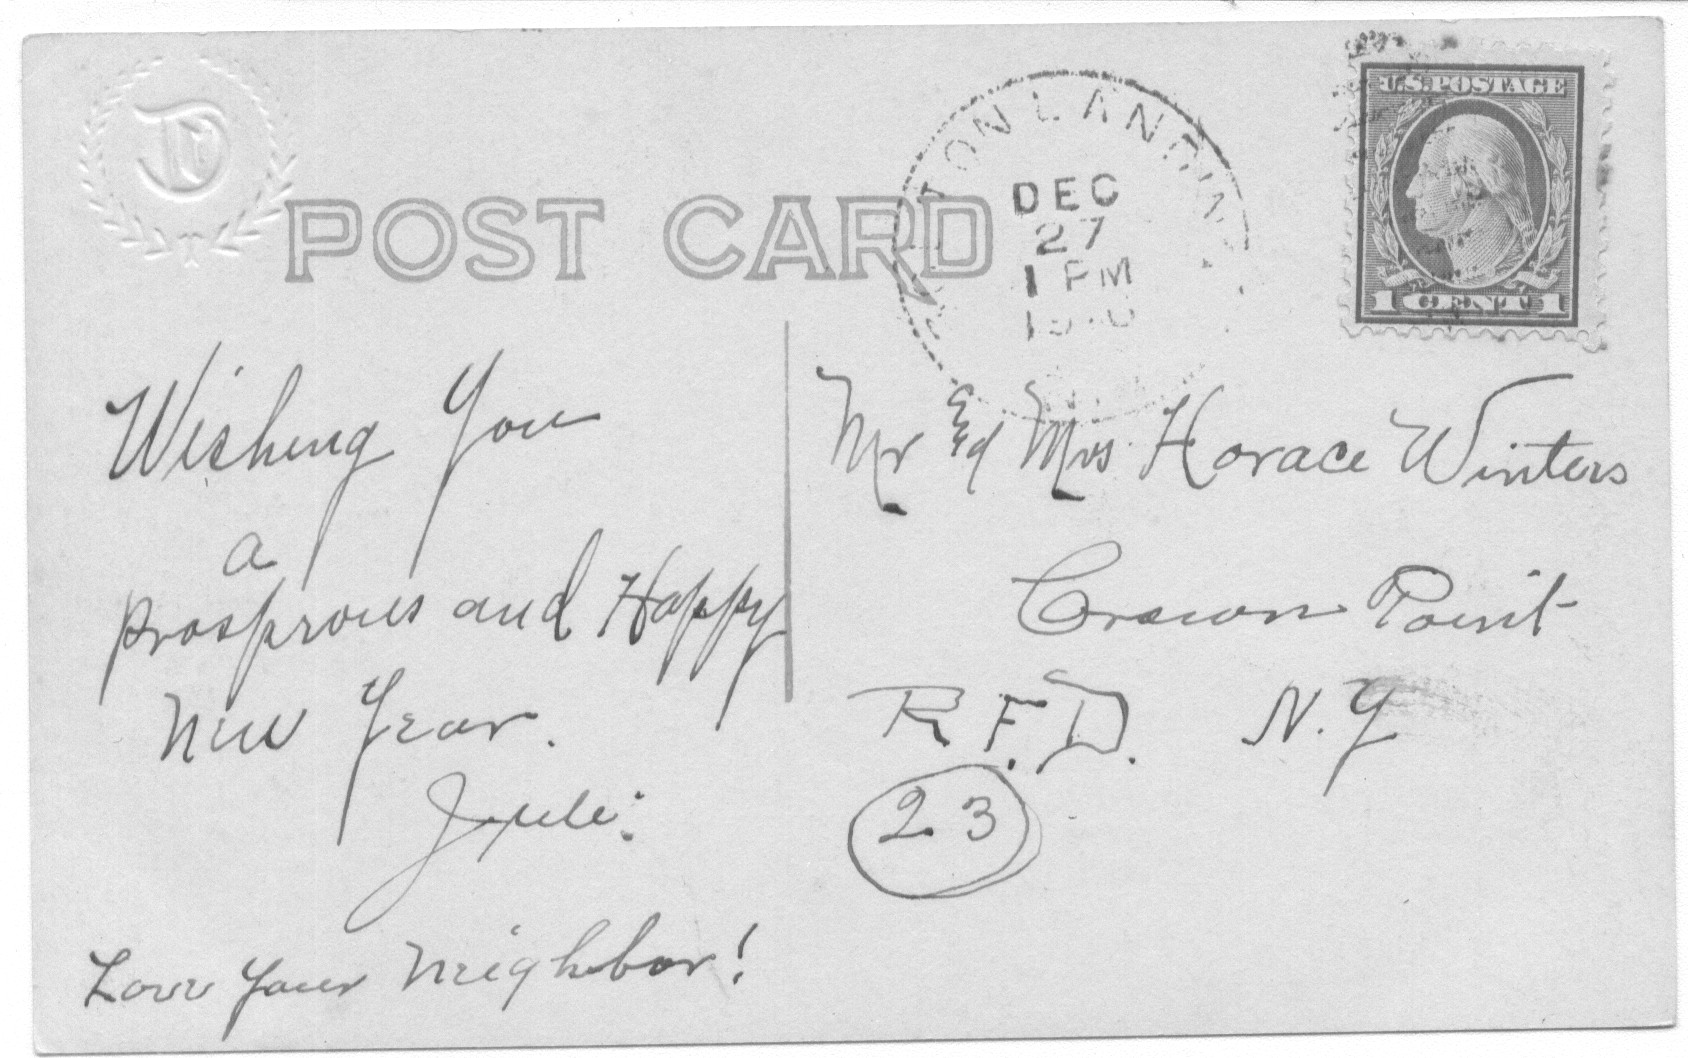 POST CARD
TON LANDIN
DEC
27
1 PM
U.S. POSTAGE
1 CENT 1
Wishing You
a
prosprous and Happy
New Year.
Love your neighbor!
Mr & Mrs. Horace Winters
Crown Point
R.F.D. N.Y
23